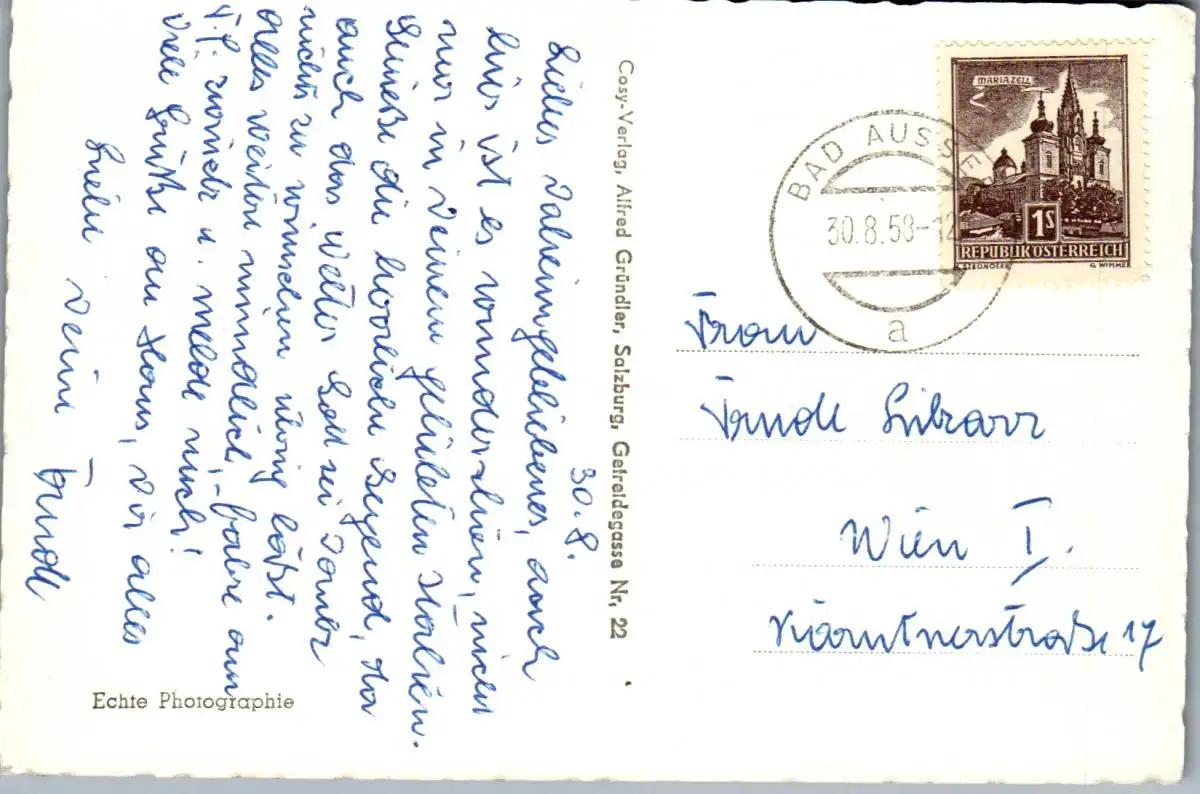 30.8.
Liebes Daheimgebliebenes, auch
hier ist es wunderschön, nicht
nur in Deinem geliebten Italien.
Genieße die herrliche Gegend, da
auch das Wetter Gott sei Dank
nichts zu wünschen übrig läßt.
Alles weitere mündlich, - fahre am
4.9. zurück u. melde mich!
Viele Grüße an Hans, Dir alles
Liebe Deine
Trudl
Cosy-Verlag, Alfred Gründler, Salzburg, Getreidegasse Nr. 22
Echte Photographie
BAD AUSSEE
30.8.58-12
a
MARIAZELL
1S
REPUBLIK ÖSTERREICH
G. WIMMER
Frau
Trudl
Wien I.
Kärntnerstraße 17